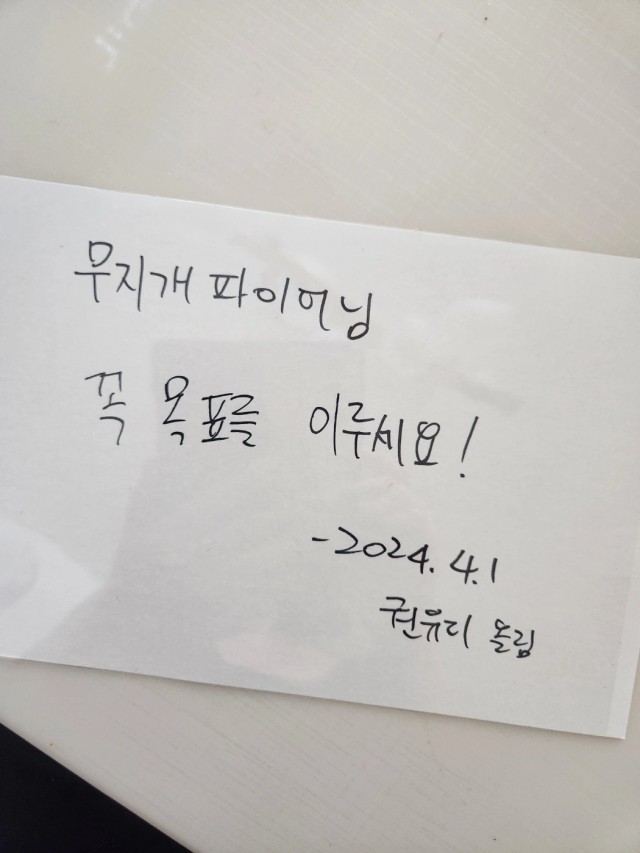 무지개 파이어님
꼭 목표를 이루세요!
-2024.4.1
권유리 올림